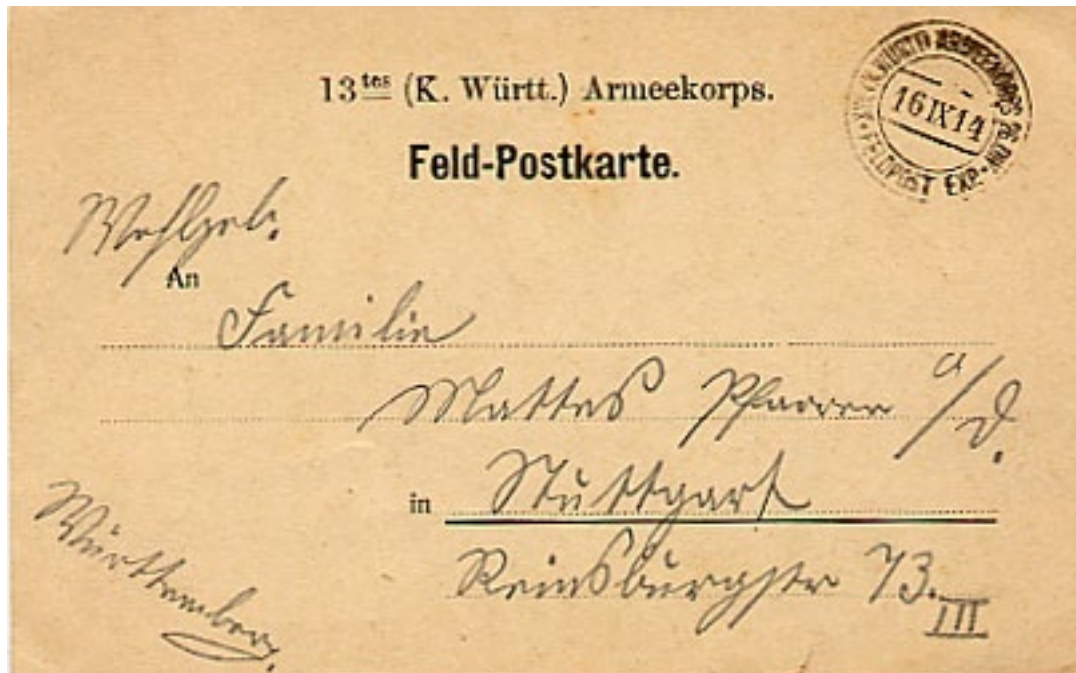 13tes (K. Württ.) Armeekorps.
Feld-Postkarte.
ARMEEKORPS
FELDPOST EXP.
16 IX 14
Wohlgeb.
An
Familie
Mattes Pfarrer a/D.
in Stuttgart
Reinsburgstr 73. III
Württemberg.